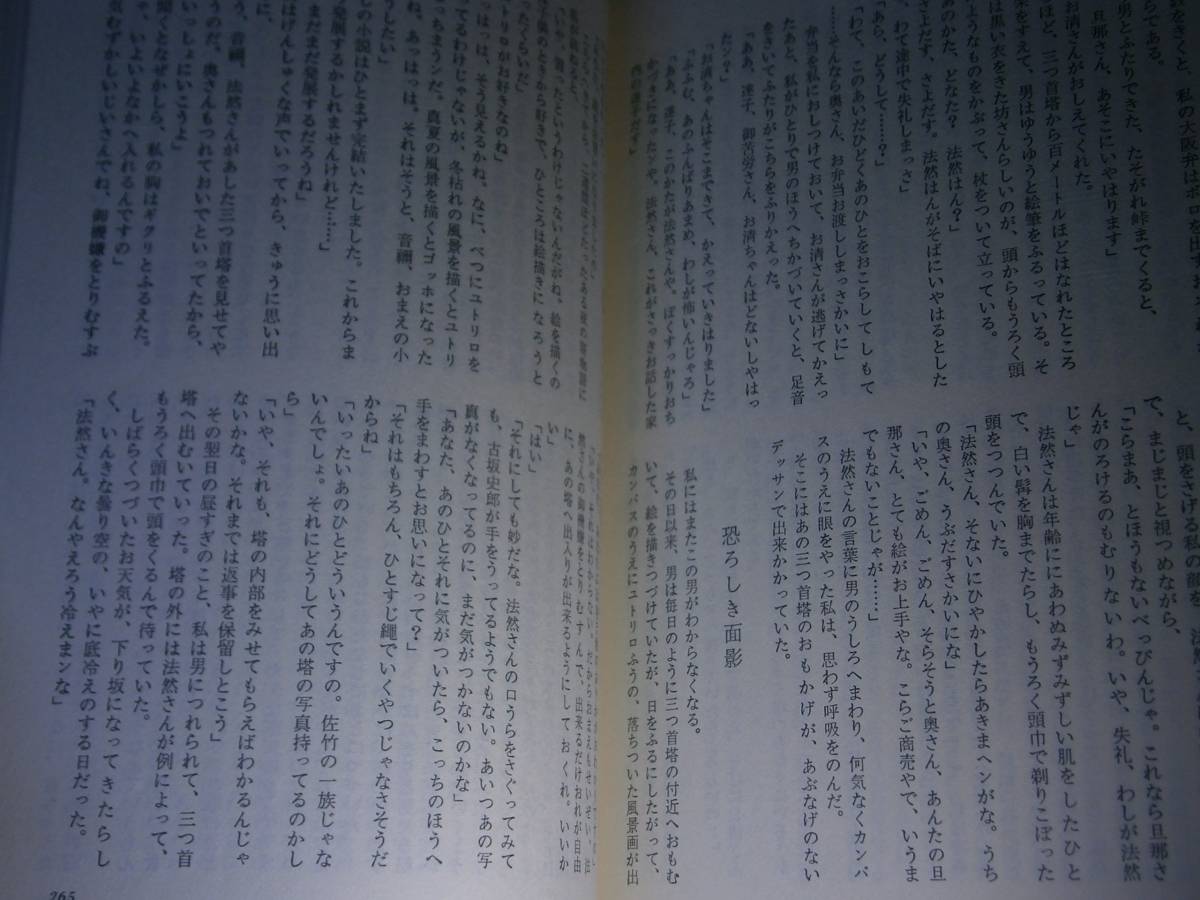 旦那さん、あそこにいやはります」
お清さんがおしえてくれた。
男とふたりできた、たそがれ峠までくると、
ほど、三つ首塔から百メートルほどはなれたところ
をすえて、男はゆうゆうと絵筆をふるっている。そ
は黒い衣をきた坊さんらしいのが、頭からもうろく頭
ようなものをかぶって、杖をついて立っている。
あのかた、どなた? 法然はん?」
さよだす、さよだす。法然はんがそばにいやはるとした
、わて途中で失礼しまっさ」
「あら、どうして……?」
「わて、このあいだひどくあのひとをおこらしてしもて
……そんなら奥さん、お弁当お渡ししまっさかいに」
弁当を私におしつけておいて、お清さんが逃げてかえっ
たあと、私がひとりで男のほうへちかづいていくと、足音
をきいてふたりがこちらをふりかえった。
「ああ、達子、御苦労さん、お清ちゃんはどないしやはっ
たン?」
「お清ちゃんはそこまできて、かえっていきはりました」
「ふふむ、あのふんばりあまめ、わしが怖いんじゃろ」
「ああ、達子、このかたが法然さんや。ぼくすっかりおち
かづきになったンや。法然さん、これがさっきお話した家
と、頭をさげる私の顔を、法然
で、まじまじと視つめながら、
「こらまあ、とほうもないべっぴんじゃ。これなら旦那さ
んがのろけるのもむりないわ。いや、失礼、わしが法然
じゃ」
法然さんは年齢ににあわぬみずみずしい肌をしたひと
で、白い髯を胸までたらし、もうろく頭巾で剃りこぼった
頭をつつんでいた。
「法然さん、そないにひやかしたらあきまヘンがな。うち
の奥さん、うぶだすさかいにな」
「いや、ごめん、ごめん、そらそうと奥さん、あんたの旦
那さん、とても絵がお上手やな。こらご商売やで、いうま
でもないことじゃが……」
法然さんの言葉に男のうしろへまわり、何気なくカンバ
スのうえに眼をやった私は、思わず呼吸をのんだ。
そこにはあの三つ首塔のおもかげが、あぶなげのない
デッサンで出来かかっていた。
恐ろしき面影
私にはまたこの男がわからなくなる。
その日以来、男は毎日のように三つ首塔の付近へおもむ
いて、絵を描きつづけていたが、日をふるにしたがって、
カンバスのうえにユトリロふうの、落ちついた風景画が出
「いや、習ったというわけじゃないんだがね。絵を描くの
は子供のときから好きで、ひところは絵描きになろうと
ったくらいだ」
トリロがお好きなのね」
はっは、そう見えるかね。なに、べつにユトリロを
てるわけじゃないが、冬枯れの風景を描くとユトリ
っちまうンだ。真夏の風景を描くとゴッホになった
ね、あっはっは、それはそうと、音禰、おまえの小
うしたい」
しの小説はひとまず完結いたしました。これからま
発展するかしれませんけれど……」
まだまだ発展するだろうね」
はげんしゅくな声でいってから、きゅうに思い出
に、
う、音禰、法然さんがあした三つ首塔を見せてや
うのだ。奥さんもつれておいでといってたから、
いっしょにいこうよ」
聞くとなぜかしら、私の胸はギクリとふるえた。
、いよいよなかへ入れるんですの」
気むずかしいじいさんでね、御機嫌をとりむすぶ
然さんの御機嫌をとりむすんで、出来るだけおれが自由
に、あの塔へ出入りが出来るようにしておくれ。いいか
い」
「はい」
「それにしても妙だな。法然さんの口うらをさぐってみて
も、古坂史郎が手をうってるようでもない。あいつあの写
真がなくなってるのに、まだ気がつかないのかな」
「あなた、あのひとそれに気がついたら、こっちのほうへ
手をまわすとお思いになって?」
「それはもちろん、ひとすじ縄でいくやつじゃなさそうだ
からね」
「いったいあのひとどういうんですの。佐竹の一族じゃな
いんでしょ。それにどうしてあの塔の写真持ってるのかし
ら」
「いや、それも、塔の内部をみせてもらえばわかるんじゃ
ないかな。それまでは返事を保留しとこう」
その翌日の昼すぎのこと、私は男につれられて、三つ首
塔へ出むいていった。塔の外には法然さんが例によって、
もうろく頭巾で頭をくるんで待っていた。
しばらくつづいたお天気が、下り坂になってきたらし
く、いんきな曇り空の、いやに底冷えのする日だった。
「法然さん。なんやえろう冷えまンな」
265